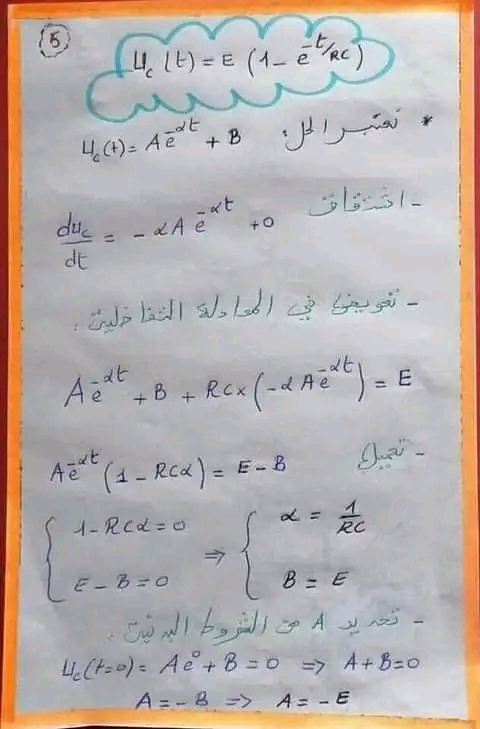 5
u_c(t) = E (1 - e^{-t/RC})
* نعتبر الحل: u_c(t) = A e^{-αt} + B
- اشتقاق
du_c/dt = - α A e^{-αt} + 0
- تعويض في المعادلة التفاضلية:
A e^{-αt} + B + RC × (-α A e^{-αt}) = E
- تعميل
A e^{-αt} (1 - RCα) = E - B
{ 1 - RCα = 0 ⇒ { α = 1/RC
E - B = 0 B = E
- تحديد A من الشروط البدئية:
u_c(t=0) = A e^0 + B = 0 ⇒ A + B = 0
A = - B ⇒ A = - E